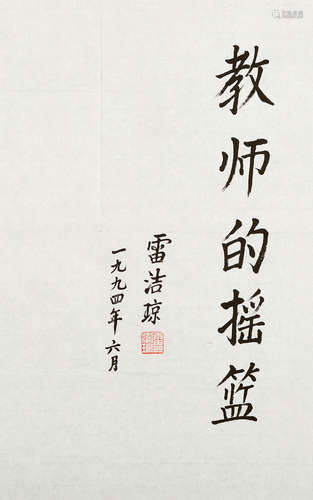 教师的摇篮
雷洁琼
一九九四年六月